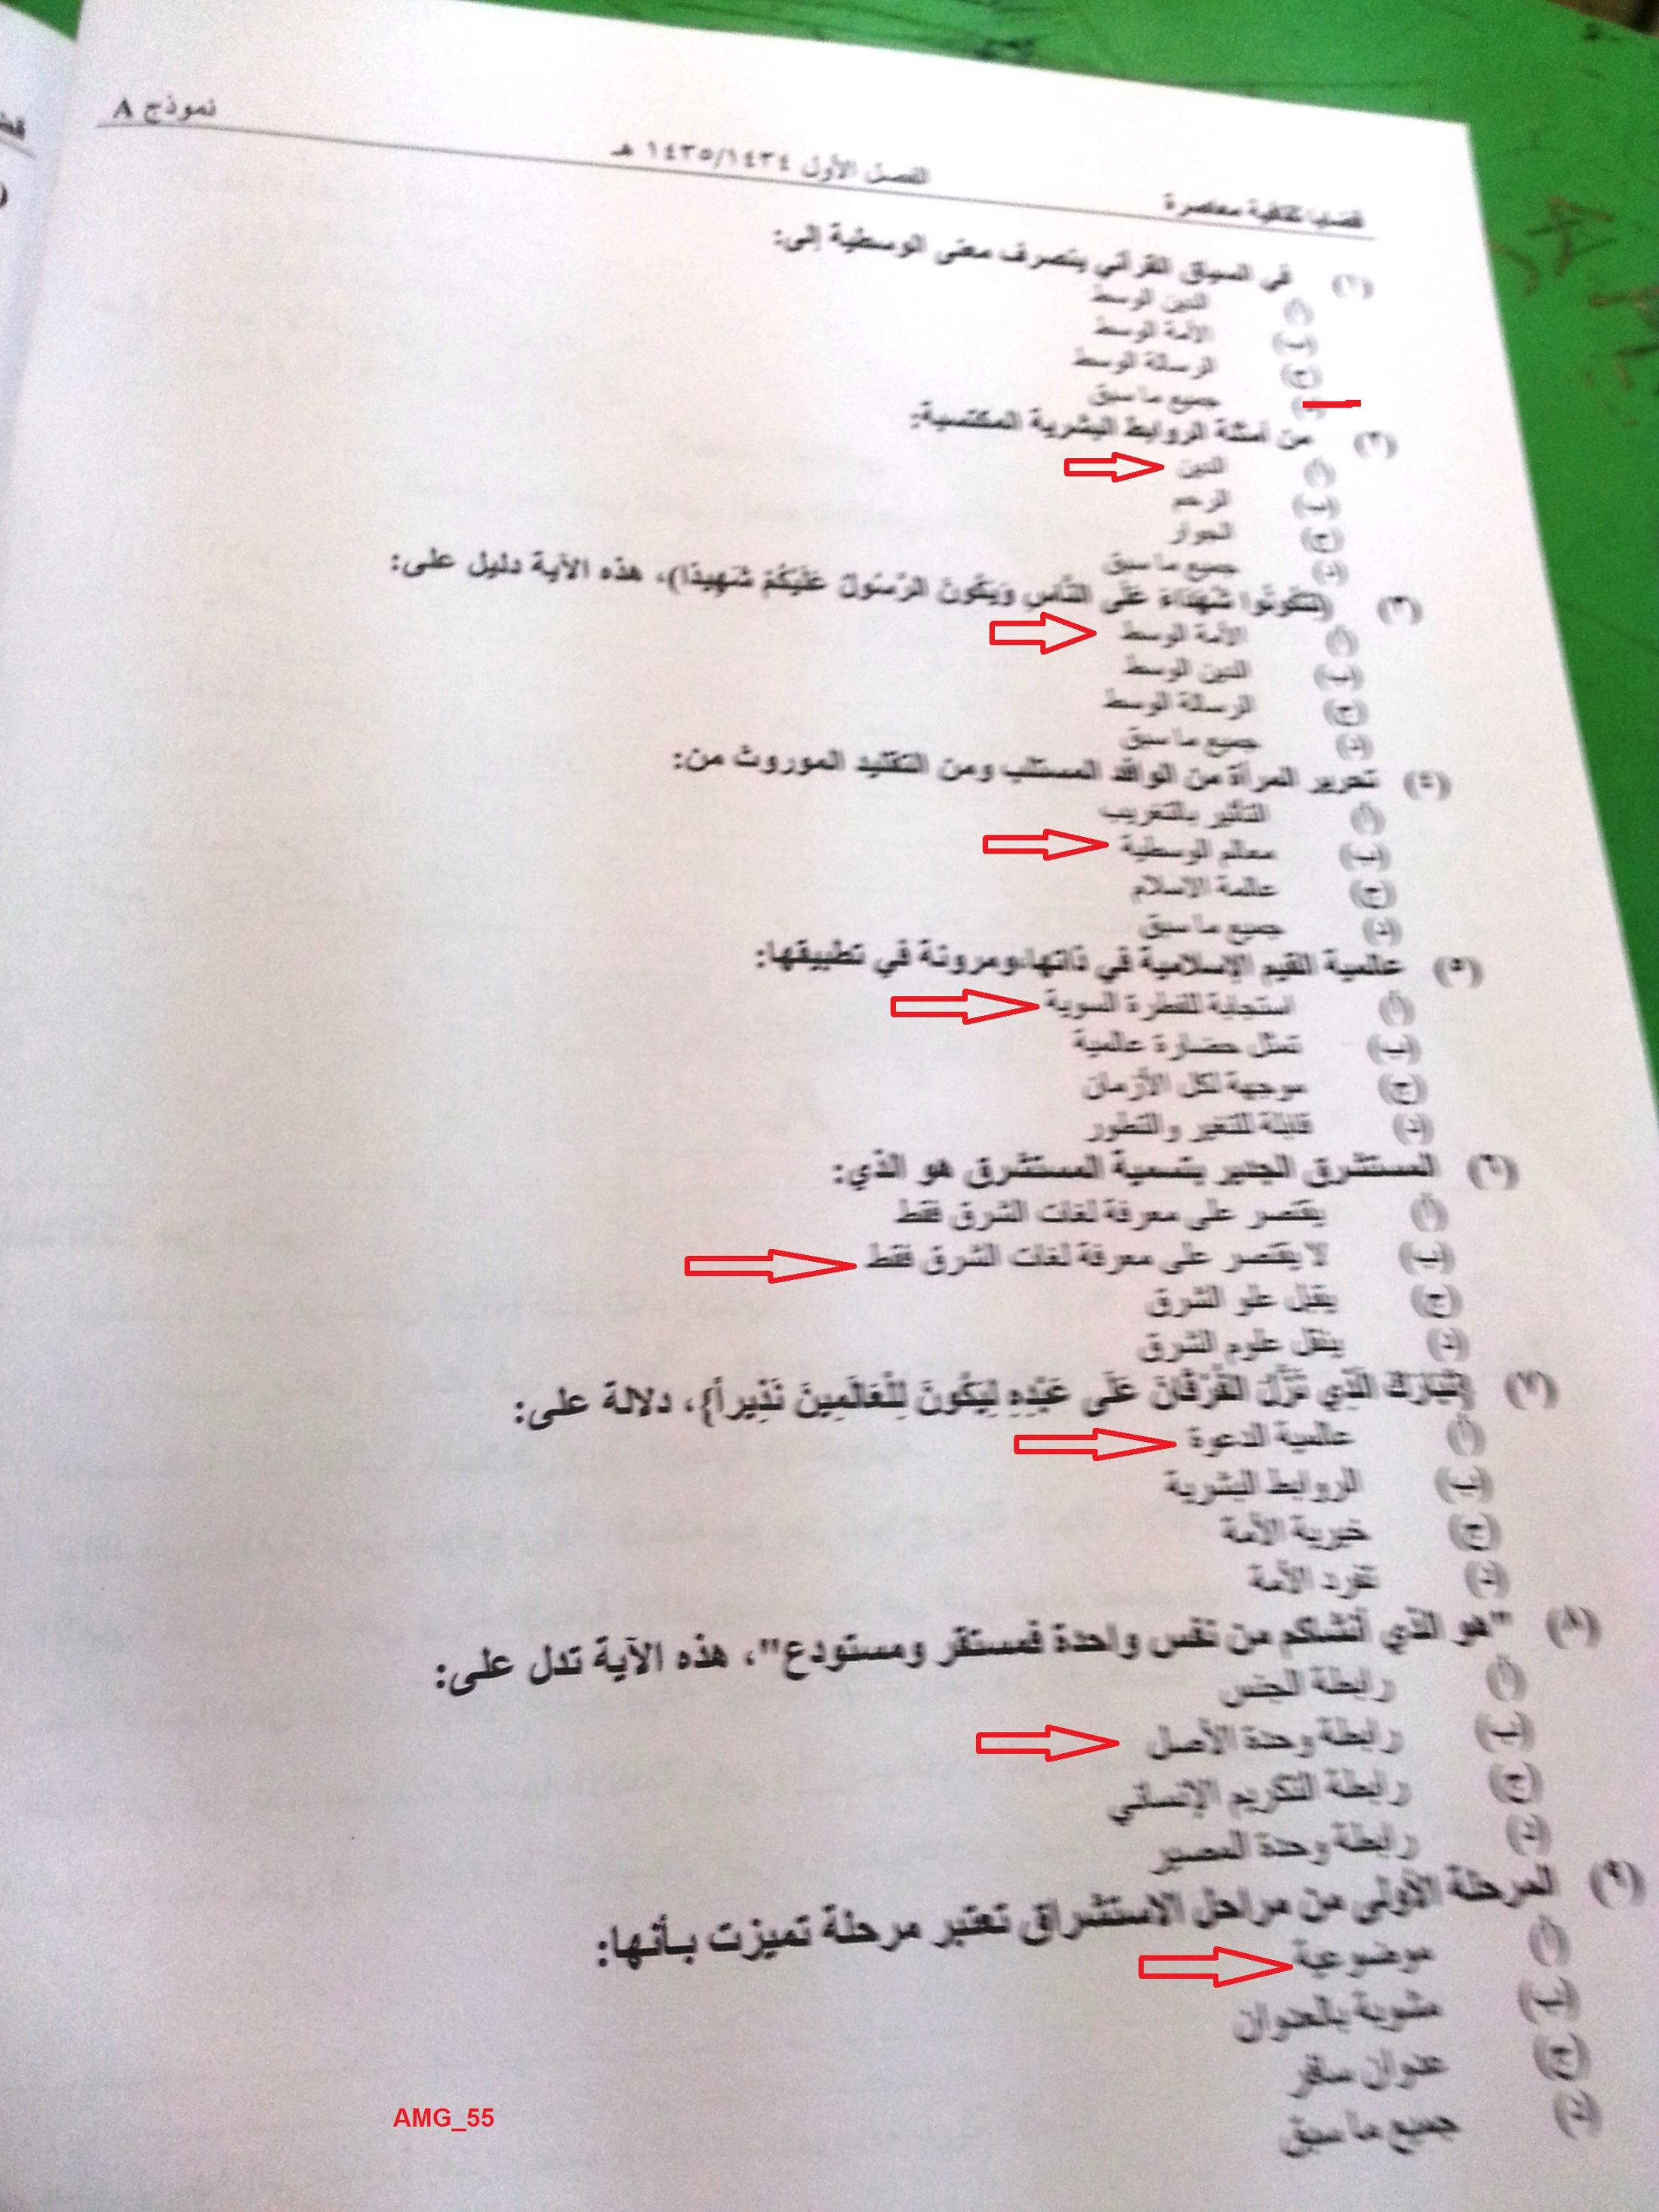 قضايا ثقافية معاصرة
الفصل الأول ١٤٣٥/١٤٣٤ هـ
نموذج A
(١) في السياق القرآني ينصرف معنى الوسطية إلى:
(أ) الدين الوسط
(ب) الأمة الوسط
(ج) الرسالة الوسط
(د) جميع ما سبق
(٢) من أمثلة الروابط البشرية المكتسبة:
(أ) الدين
(ب) الرحم
(ج) الجوار
(د) جميع ما سبق
(٣) (لتكونوا شهداء على الناس ويكون الرسول عليكم شهيدا)، هذه الآية دليل على:
(أ) الأمة الوسط
(ب) الدين الوسط
(ج) الرسالة الوسط
(د) جميع ما سبق
(٤) تحرير المرأة من الوافد المستلب ومن التقليد الموروث من:
(أ) التأثير بالتغريب
(ب) معالم الوسطية
(ج) عالمة الاسلام
(د) جميع ما سبق
(٥) عالمية القيم الإسلامية في ذاتها،ومرونة في تطبيقها:
(أ) استجابة للفطرة السوية
(ب) تمثل حضارة عالمية
(ج) موجهة لكل الأزمان
(د) قابلة للتغير والتطور
(٦) المستشرق الجدير بتسمية المستشرق هو الذي:
(أ) يقتصر على معرفة لغات الشرق فقط
(ب) لا يقتصر على معرفة لغات الشرق فقط
(ج) يقبل علو الشرق
(د) ينقل علوم الشرق
(٧) {تَبَارَكَ الَّذِي نَزَّلَ الْفُرْقَانَ عَلَى عَبْدِهِ لِيَكُونَ لِلْعَالَمِينَ نَذِيراً}، دلالة على:
(أ) عالمية الدعوة
(ب) الروابط البشرية
(ج) خيرية الأمة
(د) تفرد الأمة
(٨) "هو الذي أنشاكم من نفس واحدة فمستقر ومستودع"، هذه الآية تدل على:
(أ) رابطة الجنس
(ب) رابطة وحدة الأصل
(ج) رابطة التكريم الإنساني
(د) رابطة وحدة المصير
(٩) المرحلة الأولى من مراحل الاستشراق تعتبر مرحلة تميزت بأنها:
(أ) موضوعية
(ب) مشوبة بالعدوان
(ج) عدوان سافر
(د) جميع ما سبق
AMG_55